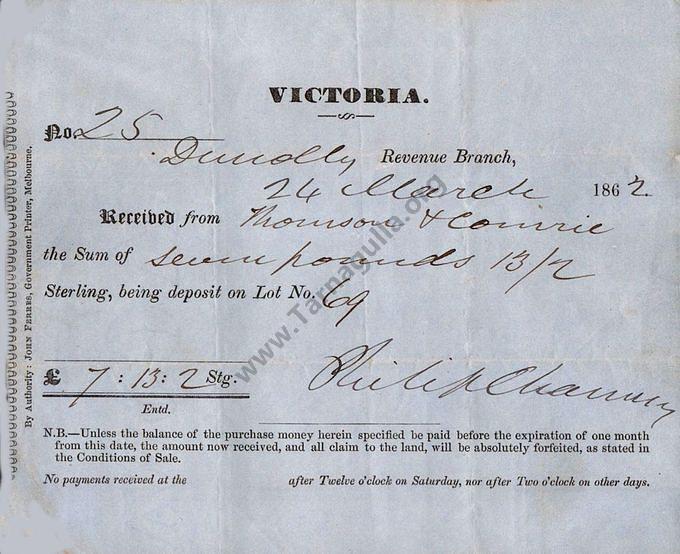 VICTORIA.
No. 25
Dunolly Revenue Branch,
24 March 1862.
Received from Thomson & Comrie
the Sum of seven pounds 13/2
Sterling, being deposit on Lot No. 69
£ 7 : 13 : 2 Stg.
Philip Chauncy
Entd.
N.B.—Unless the balance of the purchase money herein specified be paid before the expiration of one month
from this date, the amount now received, and all claim to the land, will be absolutely forfeited, as stated in
the Conditions of Sale.
No payments received at the after Twelve o'clock on Saturday, nor after Two o'clock on other days.
By Authority: JOHN FERRES, Government Printer, Melbourne.
www.Tarnagulla.org